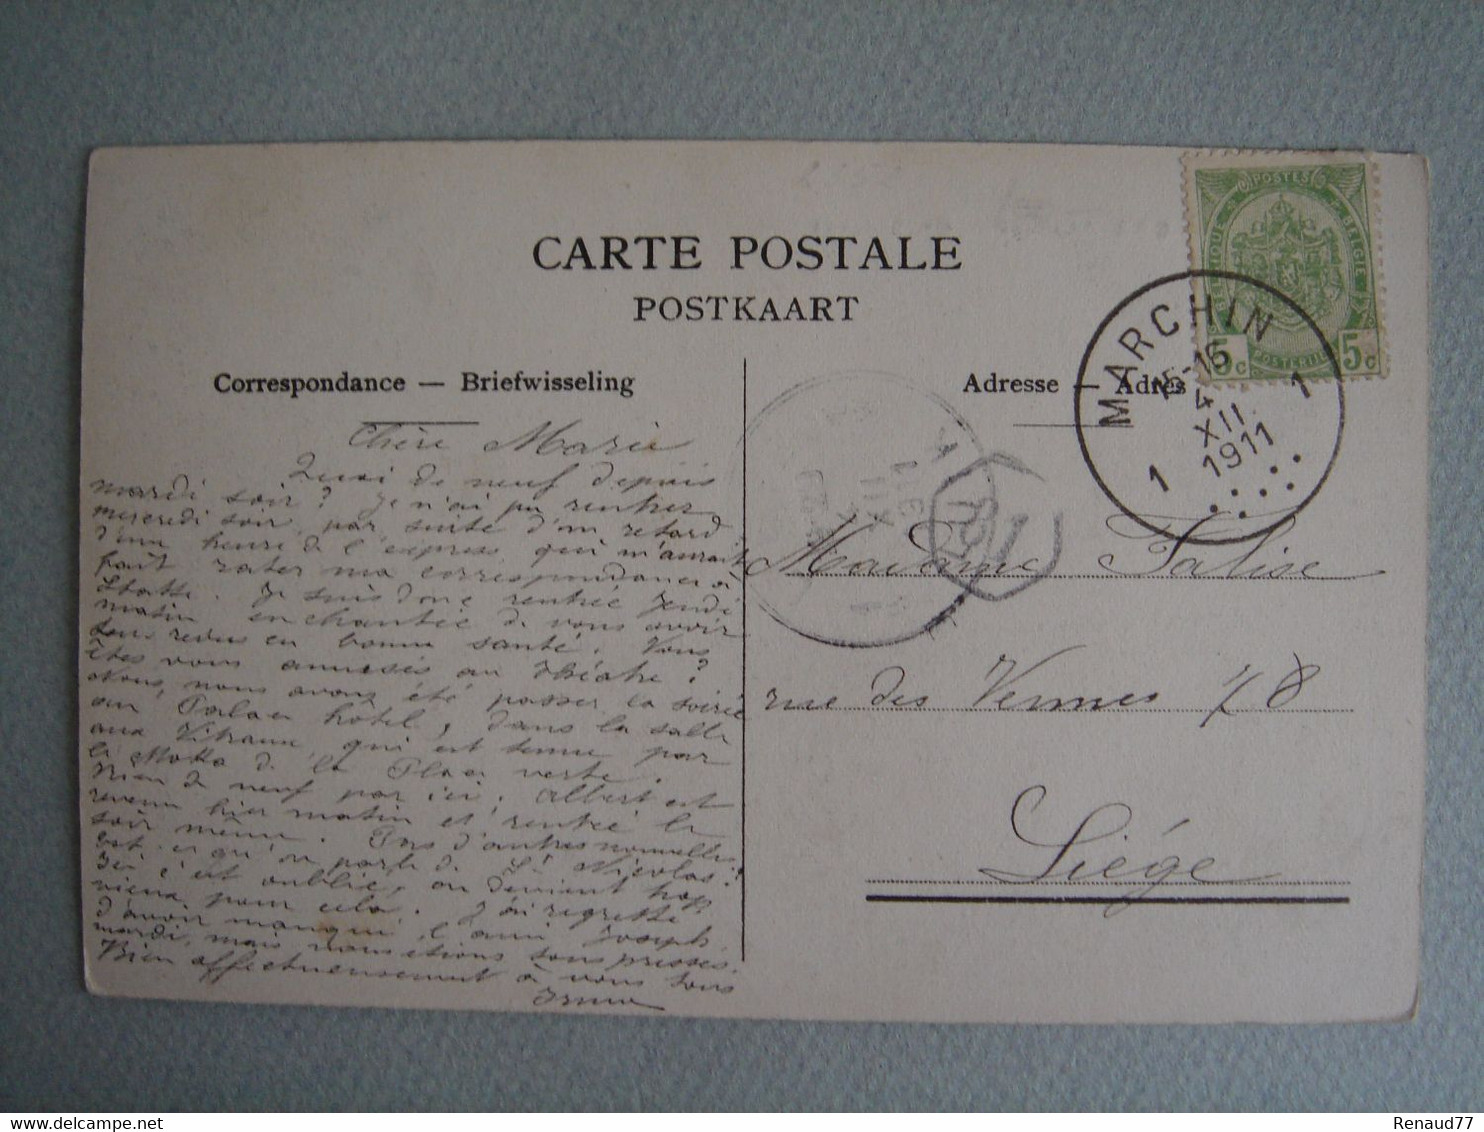 CARTE POSTALE
POSTKAART
Correspondance — Briefwisseling
Adresse — Adres
POSTES
BELGIQUE
BELGIË
POSTERIJEN
5c 5c
MARCHIN
15-16
4
XII
1911
1 1
Chère Marie
Quoi de neuf depuis
mardi soir? Je n'ai pu rentrer
mercredi soir, par suite d'un retard
d'une heure de l'express qui m'aurait
fait rater ma correspondance à
Statte. Je suis donc rentrée jeudi
matin enchantée de vous avoir
tous revus en bonne santé. Vous
êtes vous amusés au théâtre?
Nous, nous avons été passer la soirée
au Palace hôtel, dans la salle
aux Vitraux, qui est tenue par
le de la Place verte.
Rien de neuf par ici. Albert est
revenu hier matin et rentré le
soir même. Pas d'autres nouvelles
est-ce qu'on parle de St Nicolas!
Ici c'est oublié, on devient trop
vieux pour cela. J'ai regretté
d'avoir manqué l'ami Joseph
mardi, mais nous étions tous pressés.
Bien affectueusement à vous tous
Irma
Madame Falise
rue des Vennes 78
Liége
Renaud77